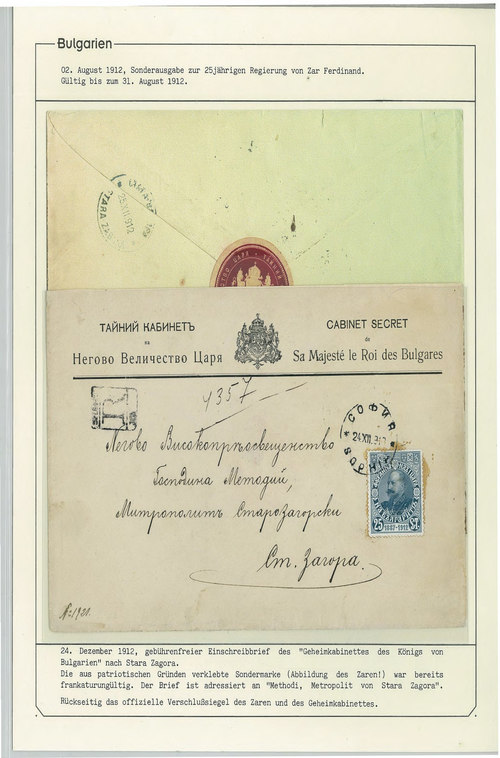 Bulgarien
02. August 1912, Sonderausgabe zur 25jährigen Regierung von Zar Ferdinand.
Gültig bis zum 31. August 1912.
STARA Z
25 XII 912
ТАЙНИЙ КАБИНЕТЪ
на
Негово Величество Царя
CABINET SECRET
de
Sa Majesté le Roi des Bulgares
R
4357
СОФИЯ
24 XII. 912
SOPHIA
25 25
1887-1912
Негово Високопрѣосвещенство
Господина Методий,
Митрополитъ СтароЗагорски
Ст. Загора.
№: 1921.
24. Dezember 1912, gebührenfreier Einschreibbrief des "Geheimkabinettes des Königs von
Bulgarien" nach Stara Zagora.
Die aus patriotischen Gründen verklebte Sondermarke (Abbildung des Zaren!) war bereits
frankaturungültig. Der Brief ist adressiert an "Methodi, Metropolit von Stara Zagora".
Rückseitig das offizielle Verschlußsiegel des Zaren und des Geheimkabinettes.